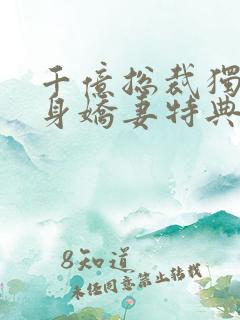 千億總裁獨
身嬌妻特典
8知道
未经同意禁止转载